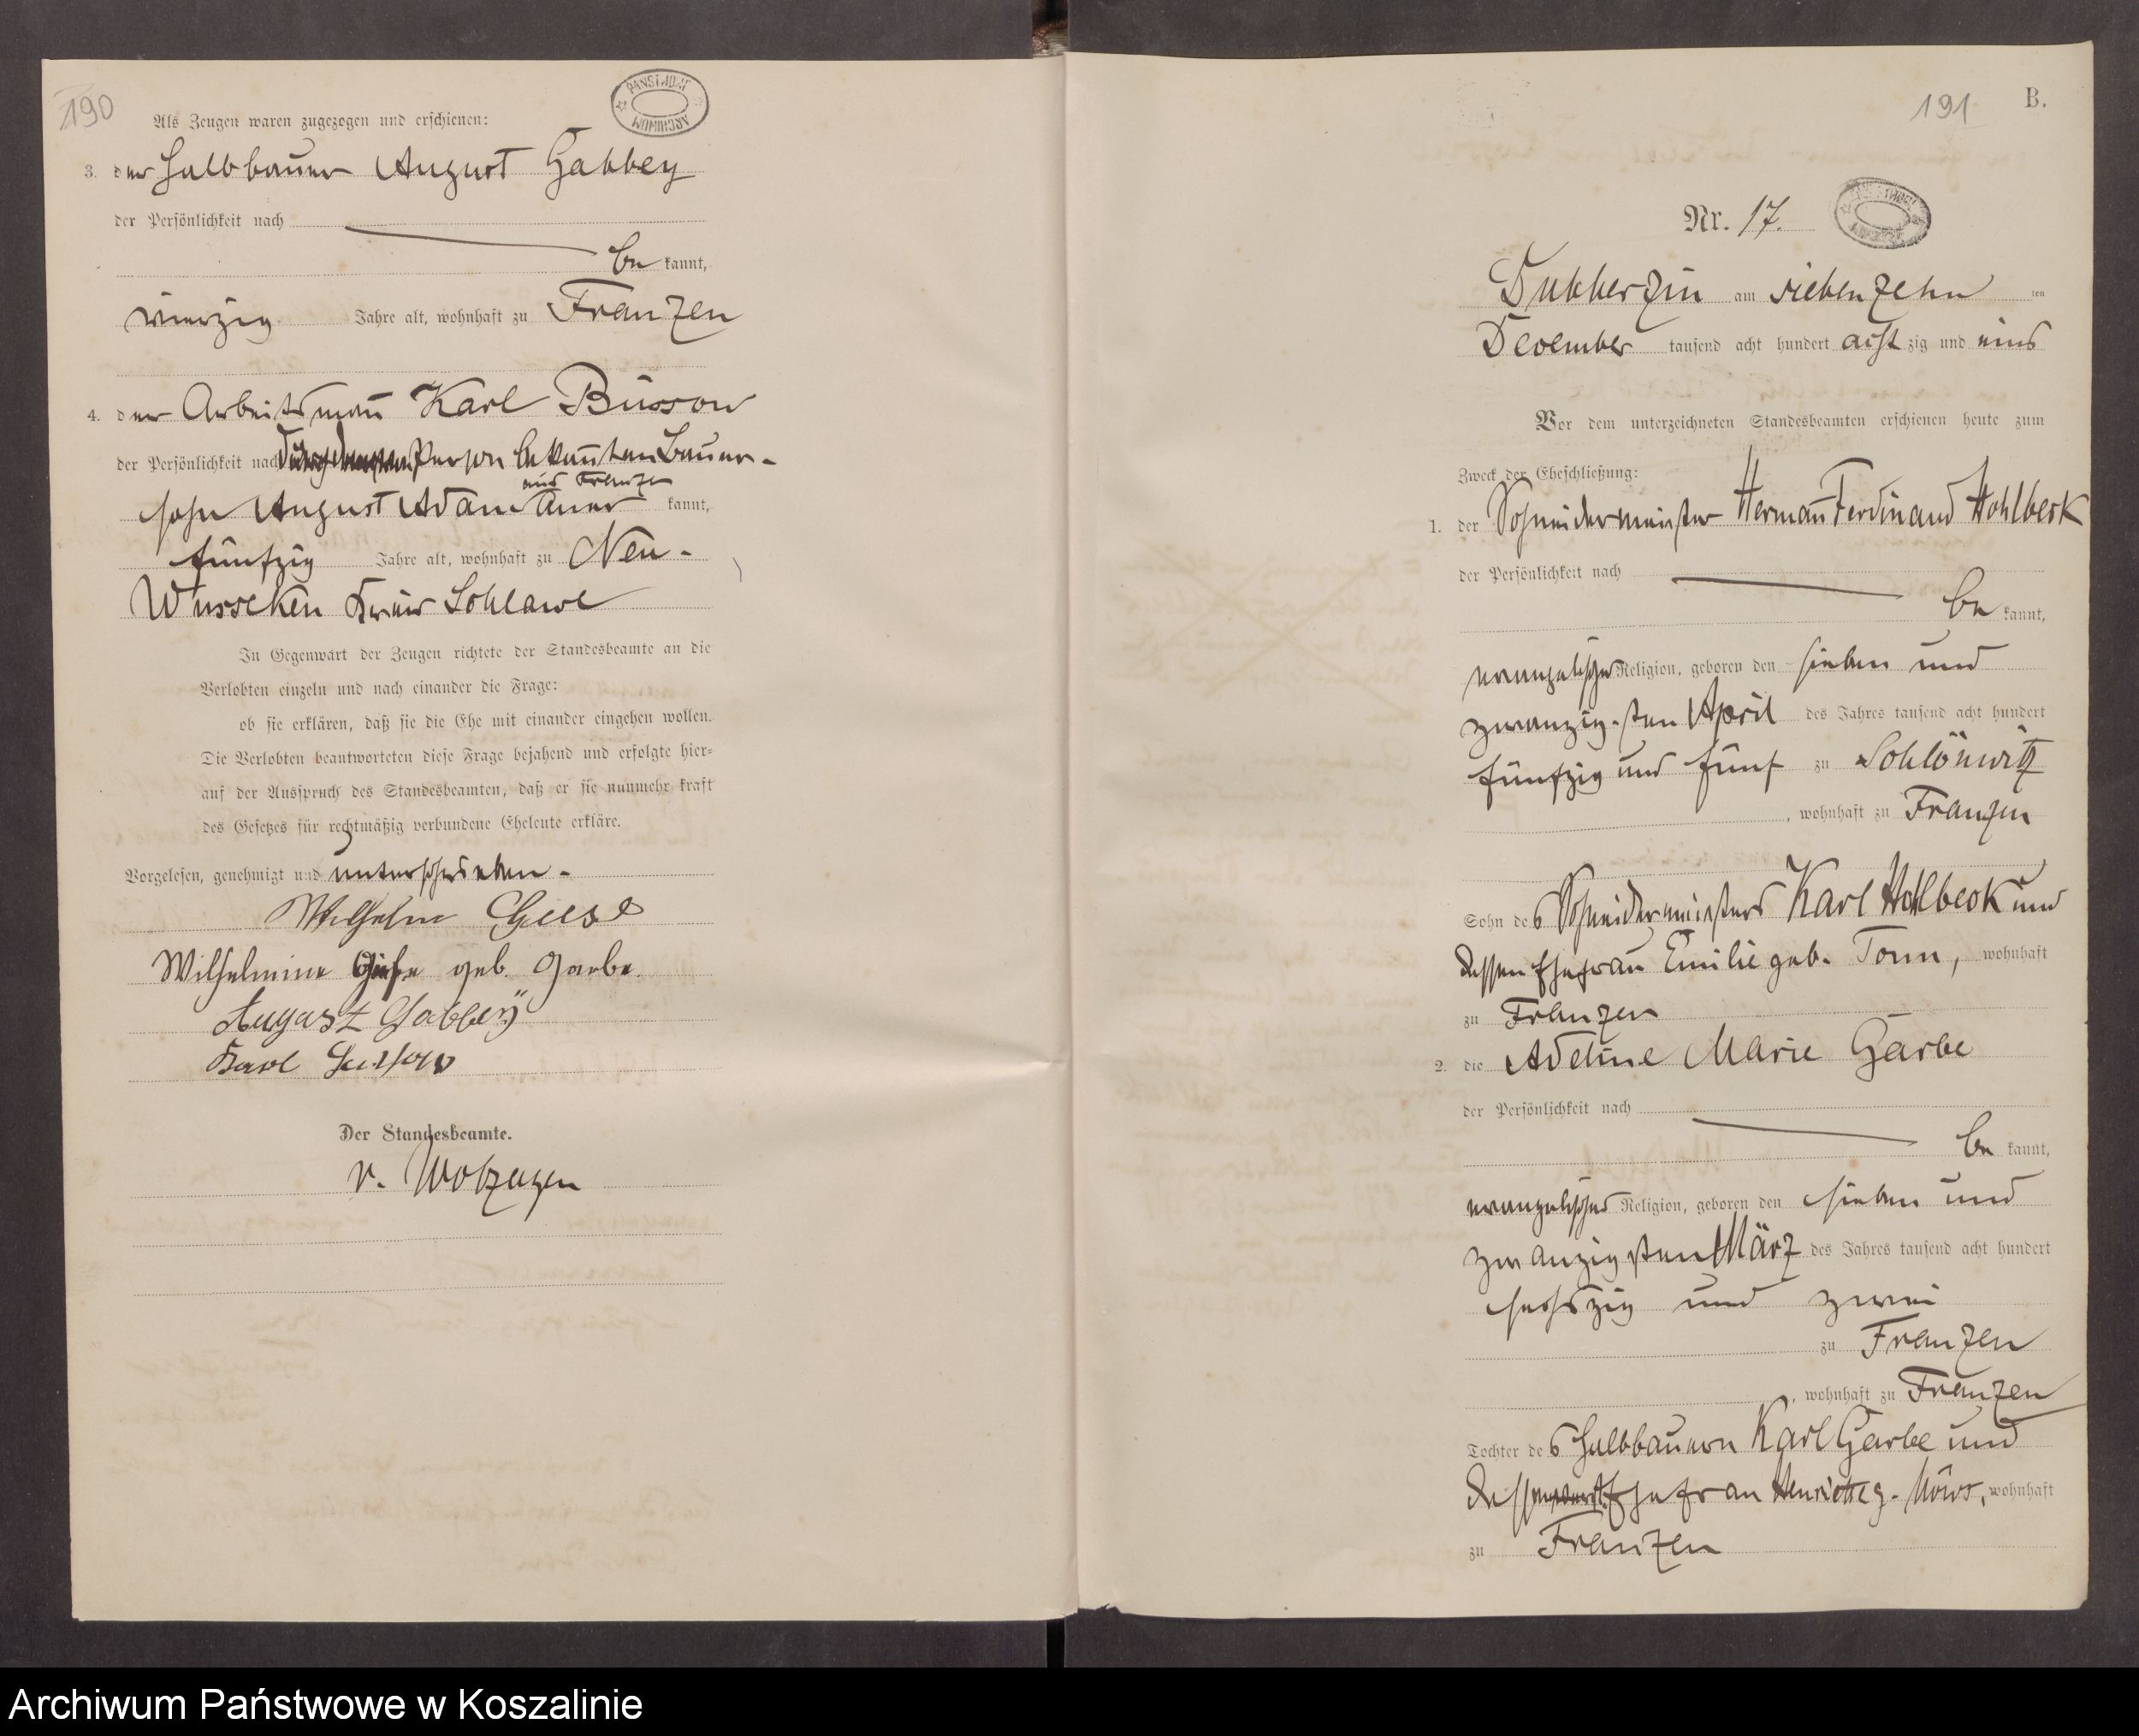 190
PAŃSTWOWE ARCHIWUM
Als Zeugen waren zugezogen und erschienen:
3. der Halbbauer August Gabbey
der Persönlichkeit nach
be kannt,
vierzig Jahre alt, wohnhaft zu Franzen
4. der Arbeitsmañ Karl Büssow
der Persönlichkeit nach Person bekañten Bauer-
aus Franzen
sohn August Adam kannt,
fünfzig Jahre alt, wohnhaft zu Neu-
Wusseken Kreis Schlawe
In Gegenwart der Zeugen richtete der Standesbeamte an die
Verlobten einzeln und nach einander die Frage:
ob sie erklären, daß sie die Ehe mit einander eingehen wollen.
Die Verlobten beantworteten diese Frage bejahend und erfolgte hier=
auf der Ausspruch des Standesbeamten, daß er sie nunmehr kraft
des Gesetzes für rechtmäßig verbundene Eheleute erkläre.
Vorgelesen, genehmigt und unterschrieben-
Wilhelm Giese
Wilhelmine Giese geb. Garbe.
August Gabbeÿ
Karl Büssow
Der Standesbeamte.
v. Wolzogen
191
B.
Nr. 17.
Dubberzin am siebenzehn ten
December tausend acht hundert acht zig und eins
Vor dem unterzeichneten Standesbeamten erschienen heute zum
Zweck der Eheschließung:
1. der Schneidermeister Hermañ Ferdinand Hohlbeck
der Persönlichkeit nach
be kannt,
evangelischer Religion, geboren den sieben und
zwanzig-sten April des Jahres tausend acht hundert
fünfzig und fünf zu Schlönwitz
, wohnhaft zu Franzen
Sohn des Schneidermeisters Karl Hohlbeck und
dessen Ehefrau Emilie geb. Tonn, wohnhaft
zu Franzen
2. die Adeline Marie Garbe
der Persönlichkeit nach
be kannt,
evangelischer Religion, geboren den sieben und
zwanzigsten März des Jahres tausend acht hundert
sechszig und zwei
zu Franzen
, wohnhaft zu Franzen
Tochter des Halbbauern Karl Garbe und
dessen Ehefrau Henriette g. Möws, wohnhaft
zu Franzen
Archiwum Państwowe w Koszalinie